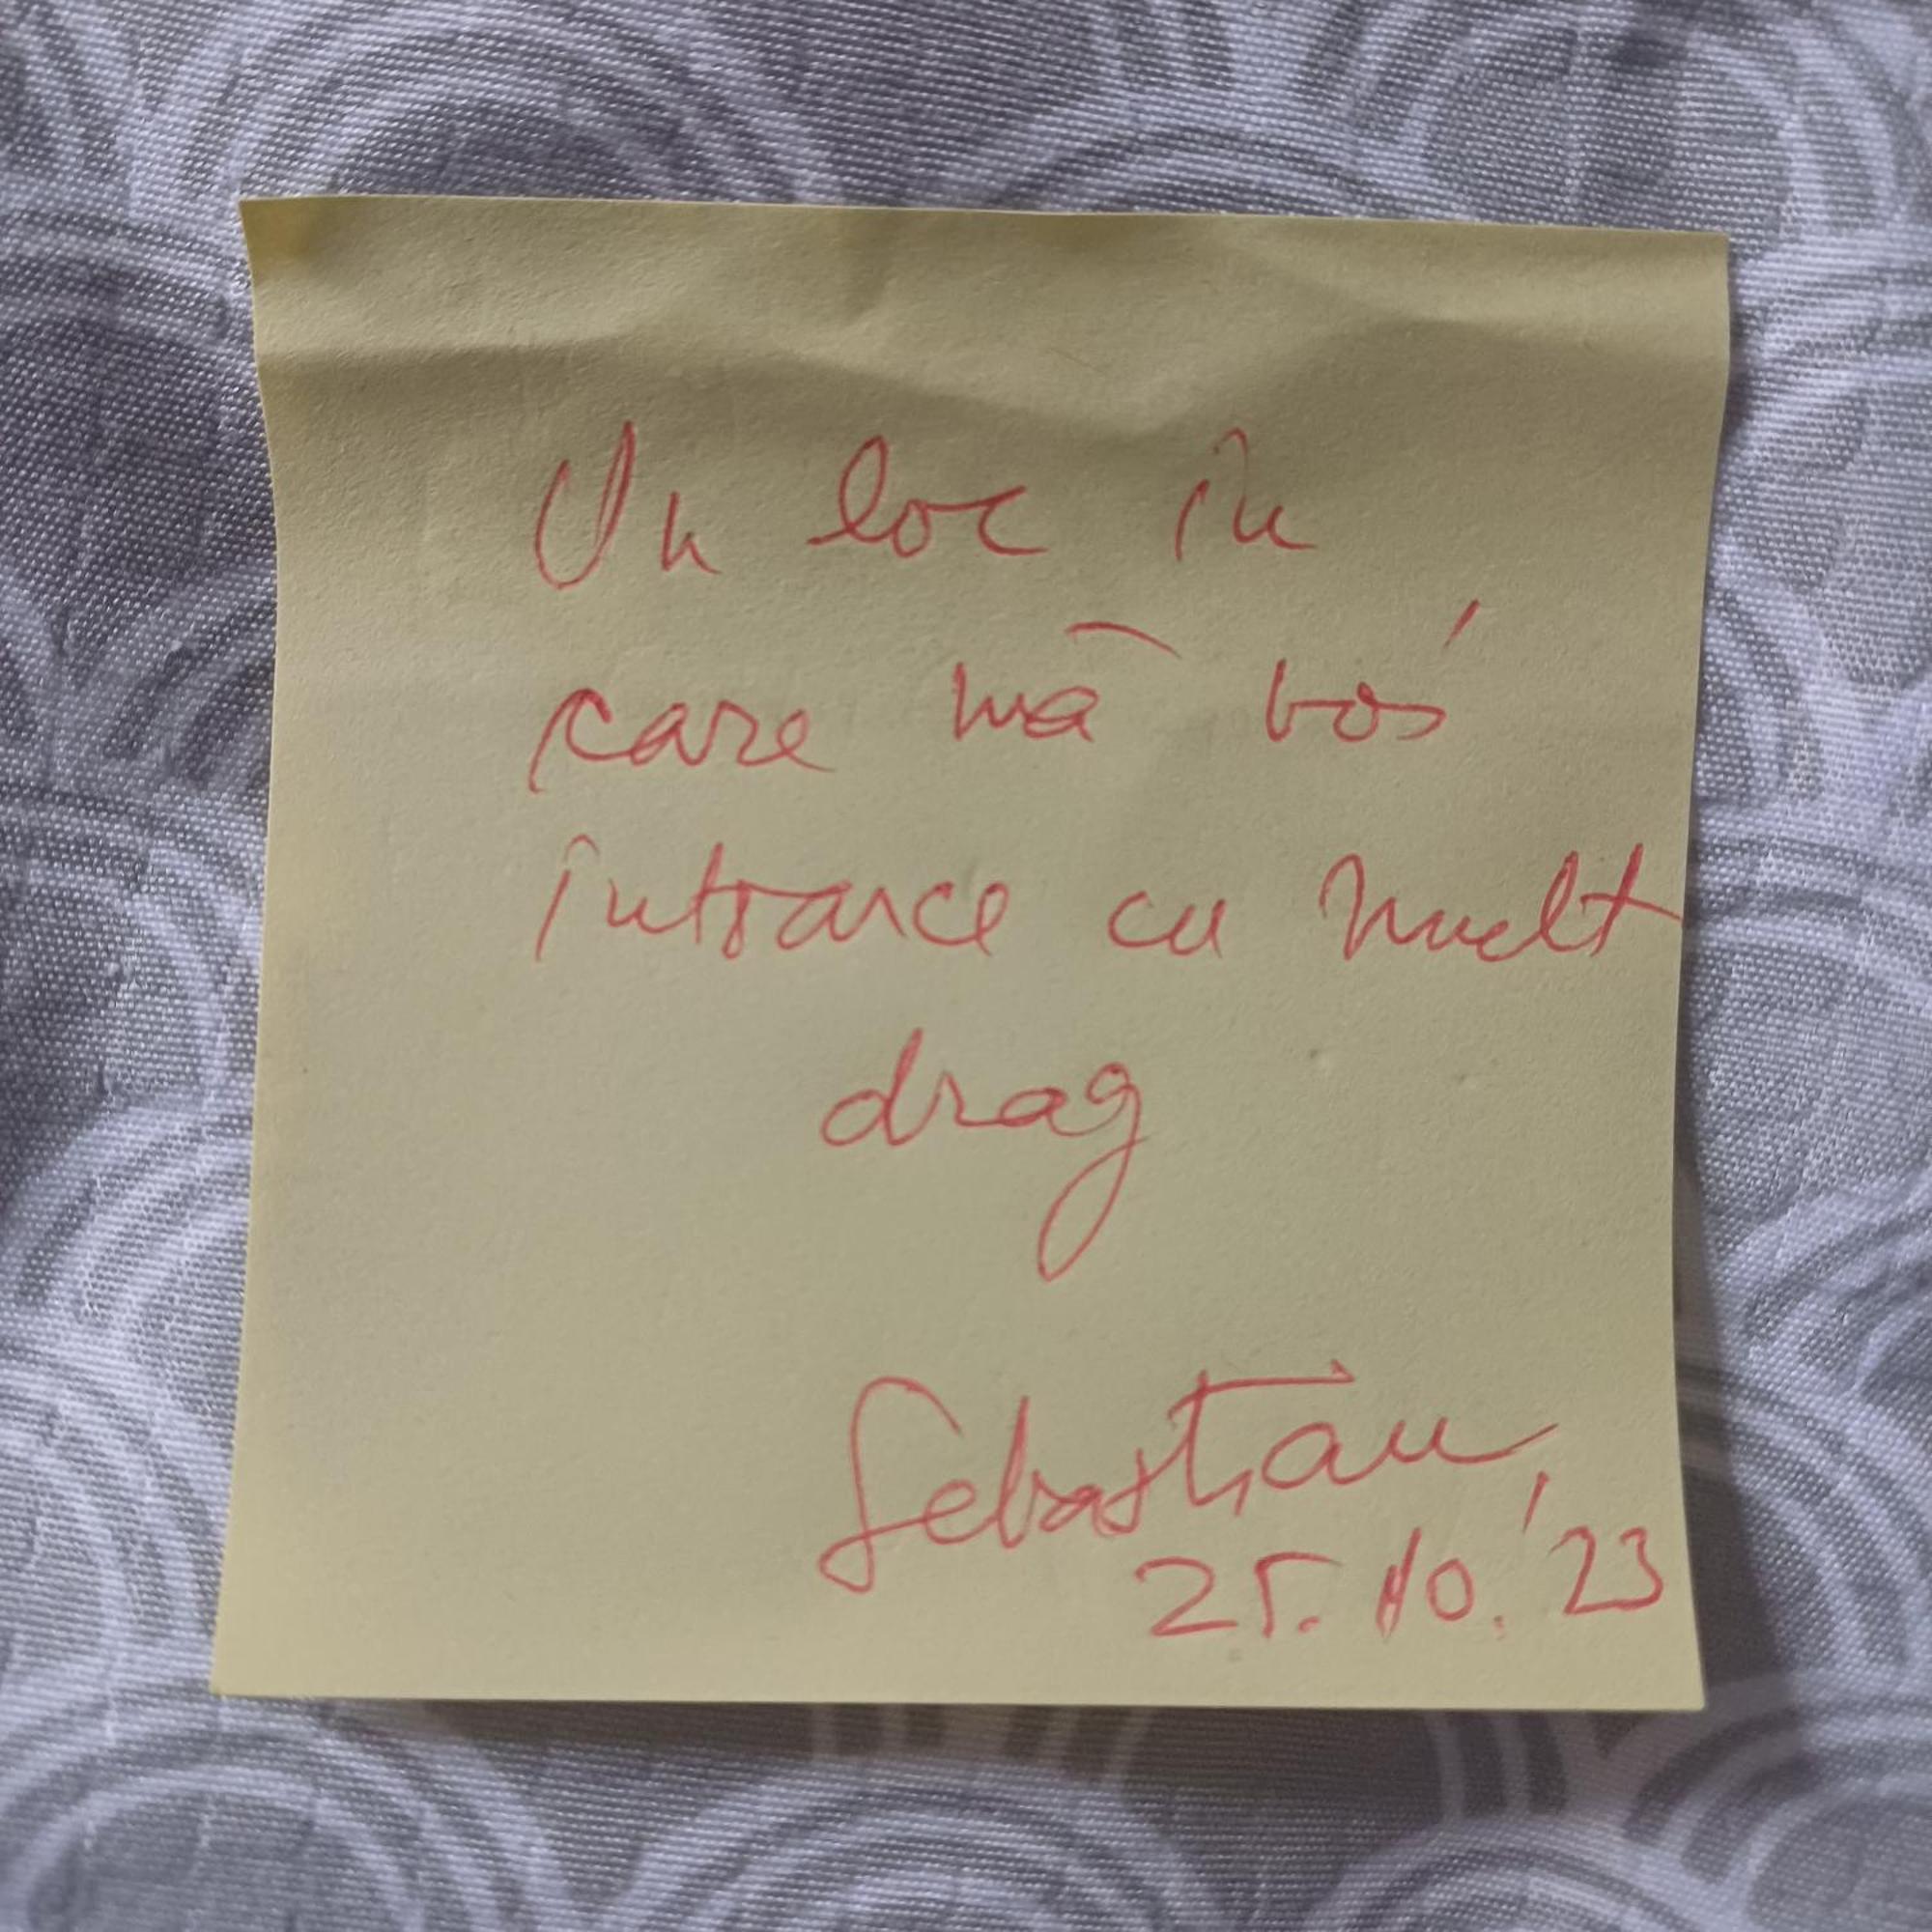 Un loc în
care mă voi
întoarce cu mult
drag
Sebastian,
25.10.'23